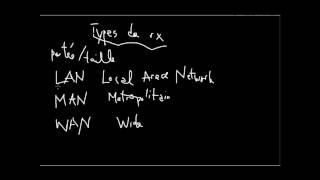 Types de rx
portée/taille
LAN Local Area Network
MAN Metropolitain
WAN Wide